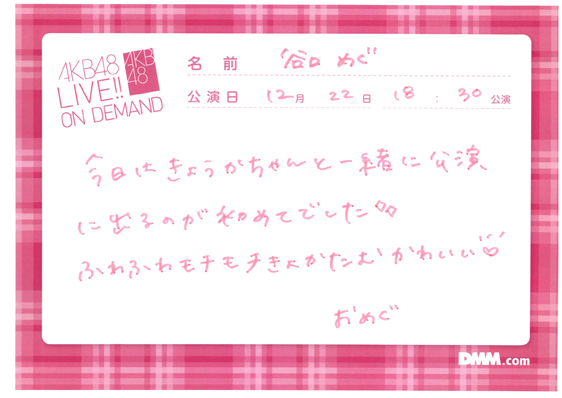 AKB48
LIVE!!
ON DEMAND
AKB
48
名前 谷口 めぐ
公演日 12月 22日 18:30公演
今日はきょうかちゃんと一緒に公演
に出るのが初めてでした
ふわふわモチモチきょかたむかわいい
おめぐ
DMM.com